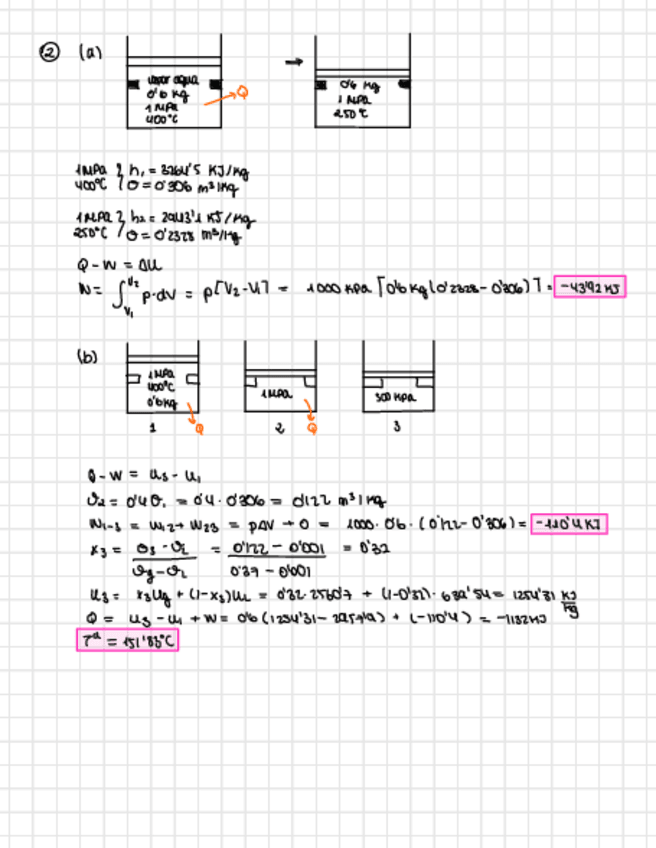 ② (a)
vapor agua
0'6 kg
1 MPa
400°C
Q
→
0'6 kg
1 MPa
250°C
1MPa } h₁ = 3264'5 KJ/kg
400°C } υ = 0'306 m³/kg
1 MPa } h₂ = 2943'1 KJ/kg
250°C } υ = 0'2328 m³/kg
Q - W = ΔU
W = ∫ᵥ₁ⱽ² p·dV = p[V₂-V₁] = 1000 KPa [0'6 kg (0'2328 - 0'306)] = -43'92 KJ
(b)
1 MPa
400°C
0'6 kg
Q
1
1 MPa
Q
2
500 KPa
3
Q - W = U₃ - U₁
υ₂ = 0'4 υ₁ = 0'4 · 0'306 = 0'122 m³/kg
W₁₋₃ = W₁₂ + W₂₃ = pΔV + 0 = 1000 · 0'6 · (0'122 - 0'306) = -110'4 KJ
x₃ = υ₃ - υL / υg - υL = 0'122 - 0'001 / 0'37 - 0'001 = 0'32
U₃ = x₃Ug + (1-x₃)UL = 0'32 · 2560'7 + (1-0'32) · 639'54 = 1254'31 KJ/kg
Q = U₃ - U₁ + W = 0'6 (1254'31 - 2957'9) + (-110'4) = -1132 KJ
Tª = 151'83°C